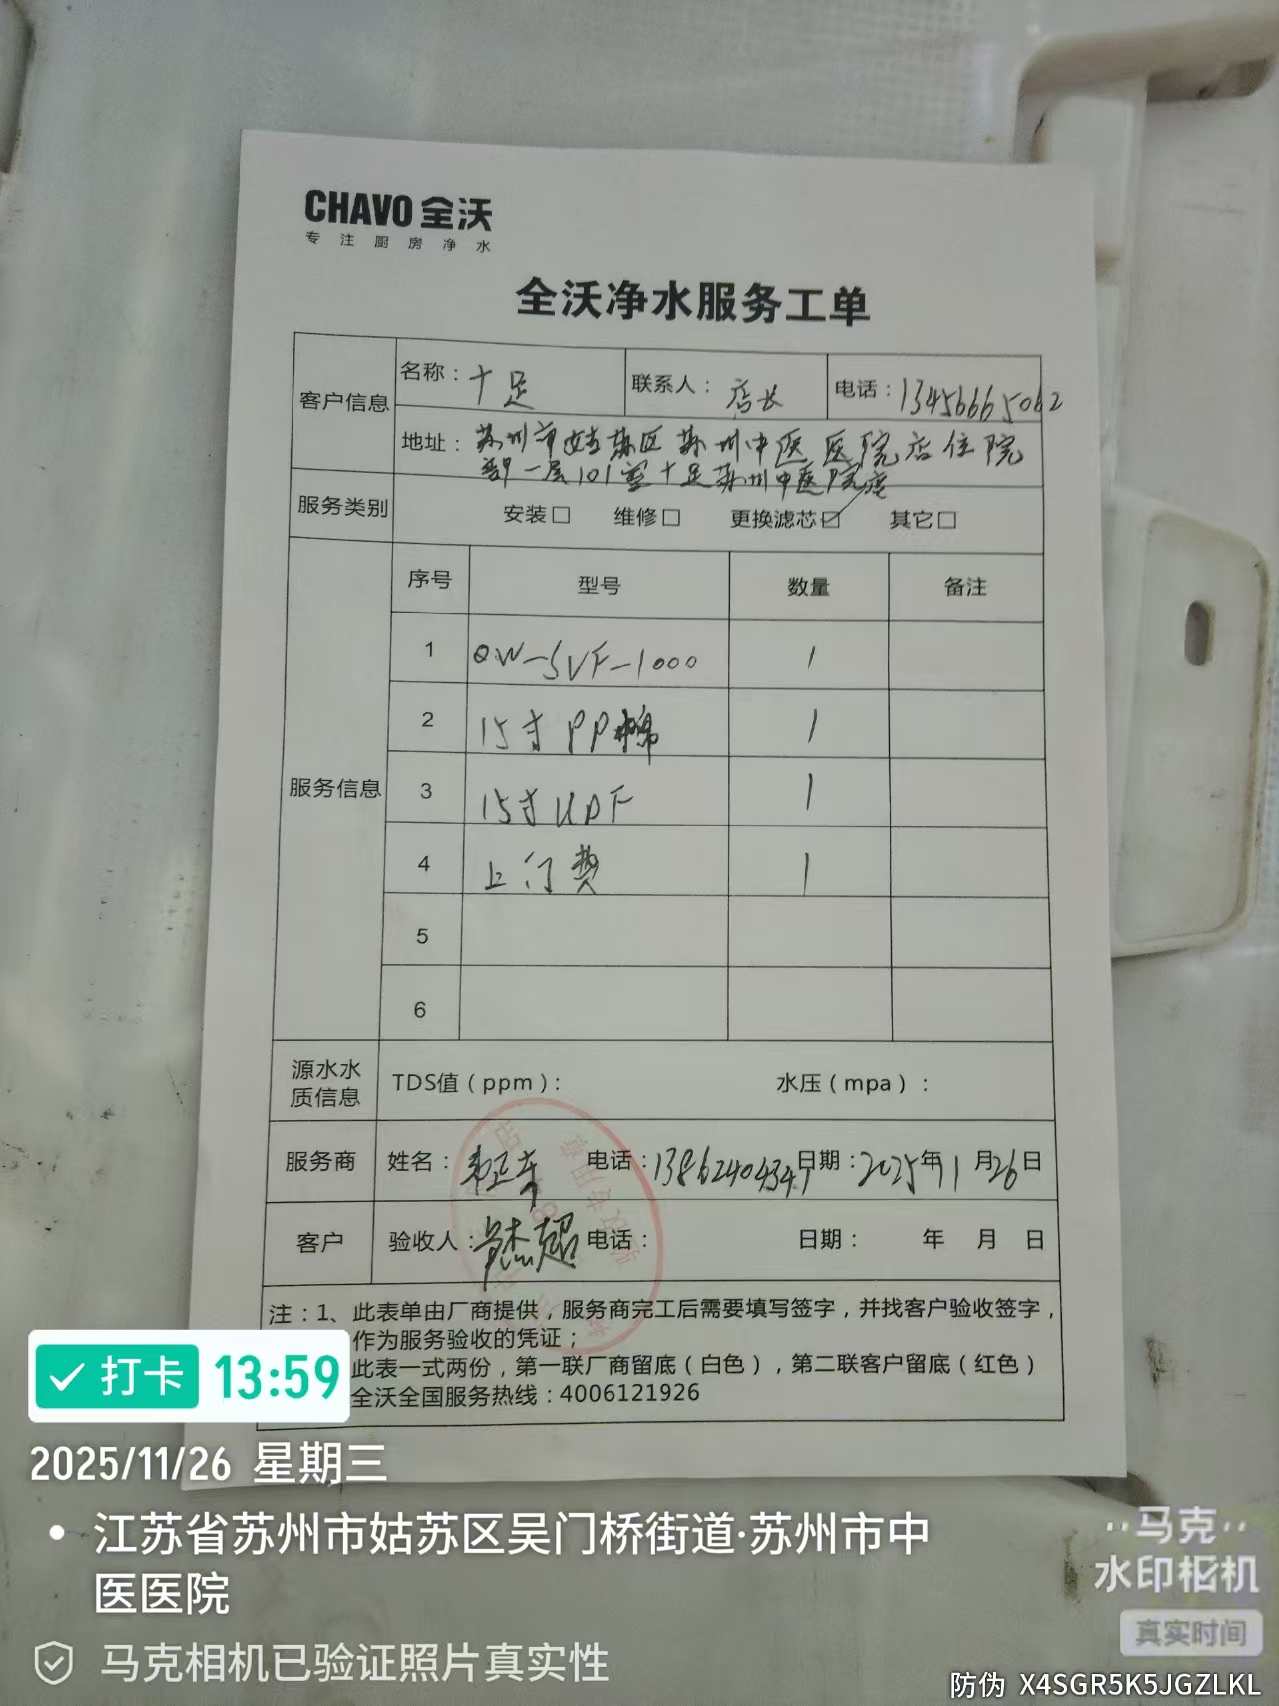 CHAVO 全沃
专注厨房净水
全沃净水服务工单
客户信息 名称：十足 联系人：店长 电话：13456665062
地址：苏州市姑苏区苏州中医医院店住院
部一层101室十足苏州中医院店
服务类别 安装□ 维修□ 更换滤芯☑ 其它□
服务信息 序号 型号 数量 备注
1 QW-SVF-1000 1
2 15寸PP棉 1
3 15寸UDF 1
4 上门费 1
5
6
源水水质信息 TDS值（ppm）： 水压（mpa）：
服务商 姓名： 电话：13862404347 日期：2025年11月26日
客户 验收人： 电话： 日期： 年 月 日
注：1、此表单由厂商提供，服务商完工后需要填写签字，并找客户验收签字，
作为服务验收的凭证；
此表一式两份，第一联厂商留底（白色），第二联客户留底（红色）
全沃全国服务热线：4006121926
打卡 13:59
2025/11/26 星期三
江苏省苏州市姑苏区吴门桥街道·苏州市中
医医院
马克相机已验证照片真实性
马克
水印相机
真实时间
防伪 X4SGR5K5JGZLKL